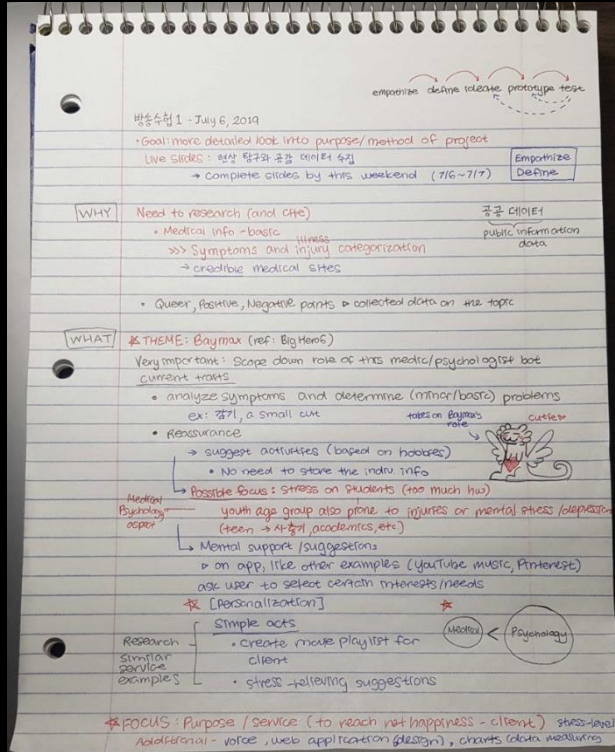 empathize define ideate prototype test
방송수업 1 - July 6, 2019
• Goal: more detailed look into purpose/method of project
Live Slides: 현상 탐구와 공감 데이터 수집
→ complete slides by this weekend (7/6~7/7)
Empathize
Define
WHY
Need to research (and cite)
공공 데이터
public information
data
• Medical info - basic
illness
>>> Symptoms and injury categorization
→ credible medical sites
• Queer, Positive, Negative points ▷ collected data on the topic
WHAT
☆ THEME: Baymax (ref: Big Hero 6)
Very important: Scope down role of this medic/psychologist bot
current traits
• analyze symptoms and determine (minor/basic) problems
ex: 감기, a small cut
takes on Baymax's
role
cutie
• Reassurance
→ suggest activities (based on hobbies)
• No need to store the indiv info
→ Possible focus: stress on students (too much hw)
Medical
Psychology
aspect
youth age group also prone to injuries or mental stress/depression
(teen → 사춘기, academics, etc)
→ Mental support/suggestions
▷ on app, like other examples (YouTube music, Pinterest)
ask user to select certain interests/needs
☆ [Personalization] ☆
Simple acts
Research
similar
service
examples
• create movie playlist for
client
• stress-relieving suggestions
Medical < Psychology
☆ FOCUS: Purpose/service (to reach happiness - client) stress-level
Additional - voice, web application (design), charts (data measuring